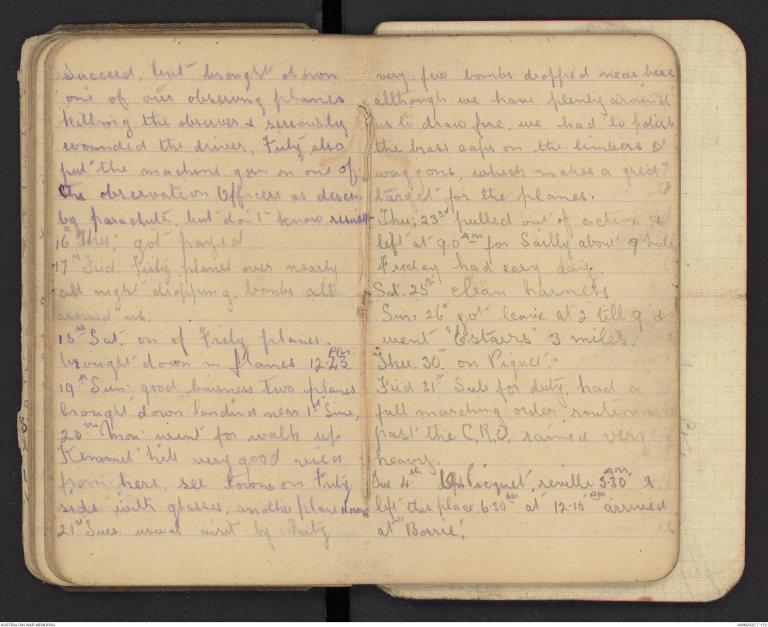 Succeed, but brought down
one of our observing planes
killing the observer & seriously
wounded the driver, Fritz also
put the machine gun on one of
the observation Officers as descen
by parachute, but don't know result
16th Thu; got payed
17th Frid Fritz planes over nearly
all night dropping, bombs all
around us.
18th Sat. on of Fritz planes
brought down in flames 12.25 pm
19th Sun; good buisness two planes
brought down landind near 1st Line,
20th Mon; went for walk up
Kemmel hill very good view
from here, see towns on Fritz
side with glasses, another plane down
21st Tues. usual visit by Fritz
very few bombs dropped near here
allthough we have plenty around
us to draw fire, we had to polish
the brass caps on the limbers &
waggons, which makes a great
target for the planes.
Thu; 23rd pulled out of action &
left at 9.0 am for Sailly about 9 mile
Friday had easy day.
Sat. 25th clean harness
Sun; 26th got leave at 2 till 9
went "Estairs" 3 miles.
Thu. 30th on Piquet.
Frid 31st Sub for duty, had a
full marching order
past the C.R.O, rained very
heavy.
Tue 4th picquet, reveille 3.30 am &
left this place 6.30 am at 12-15 pm arrived
at "Borrie."
AUSTRALIAN WAR MEMORIAL